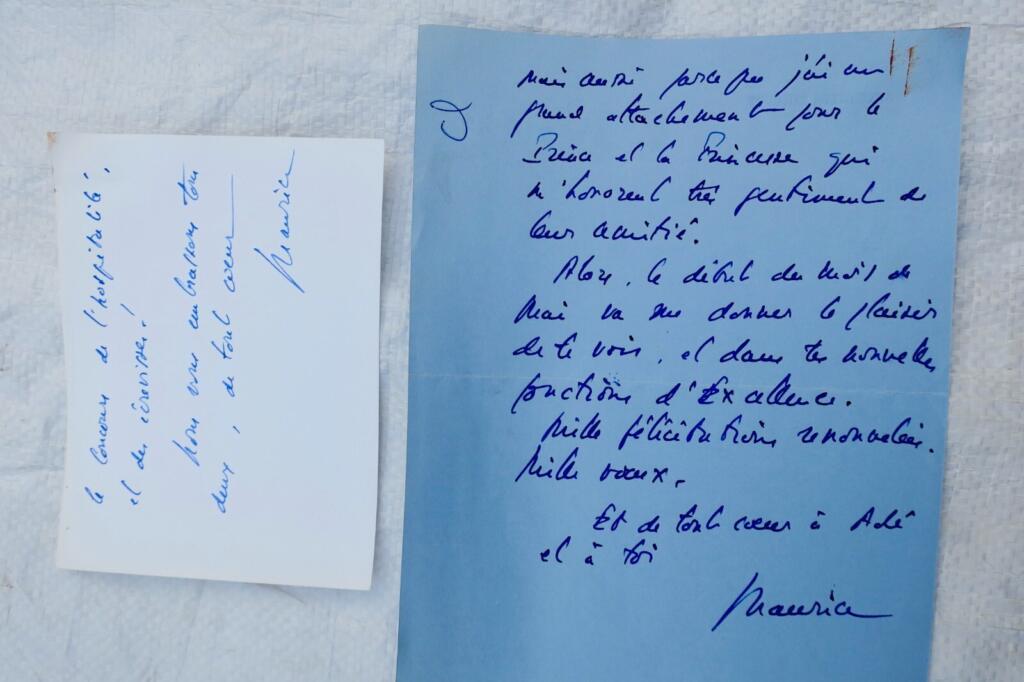 le concours de l'hospitalité,
et des écrevisses!
Nous vous embrassons tous
deux, de tout cœur
Maurice
2
mais aussi parce que j'ai un
grand attachement pour le
Prince et la Princesse qui
m'honorent très gentiment de
leur amitié.
Alors, le début du mois de
Mai va me donner le plaisir
de te voir, et dans tes nouvelles
fonctions d'Excellence.
Mille félicitations renouvelées.
Mille vœux.
Et de tout cœur à Adé
et à toi
Maurice